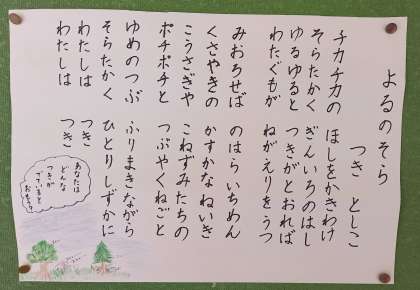 よるのそら
つき としこ
チカチカの ほしをかきわけ
そらたかく ぎんいろのはし
ゆるゆると つきがとおれば
わたぐもが ねがえりをうつ
みおろせば のはらいちめん
くさやきの かすかなねいき
こうさぎや こねずみたちの
ポチポチと つぶやくねごと
ゆめのつぶ ふりまきながら
そらたかく ひとりしずかに
わたしは つき
わたしは つき
あなたは
どんな
つきが
でていると
おもう?